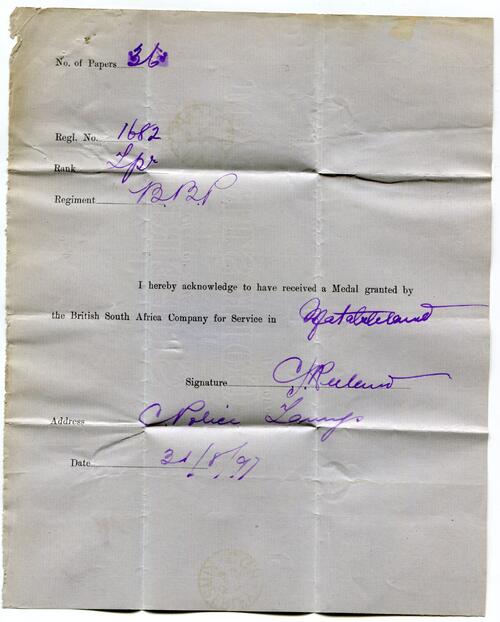 No. of Papers 36
Regl. No. 1682
Rank Tpr
Regiment B.B.P
I hereby acknowledge to have received a Medal granted by
the British South Africa Company for Service in Matabeleland
Signature
Address C Police Taungs
Date 31/8/97